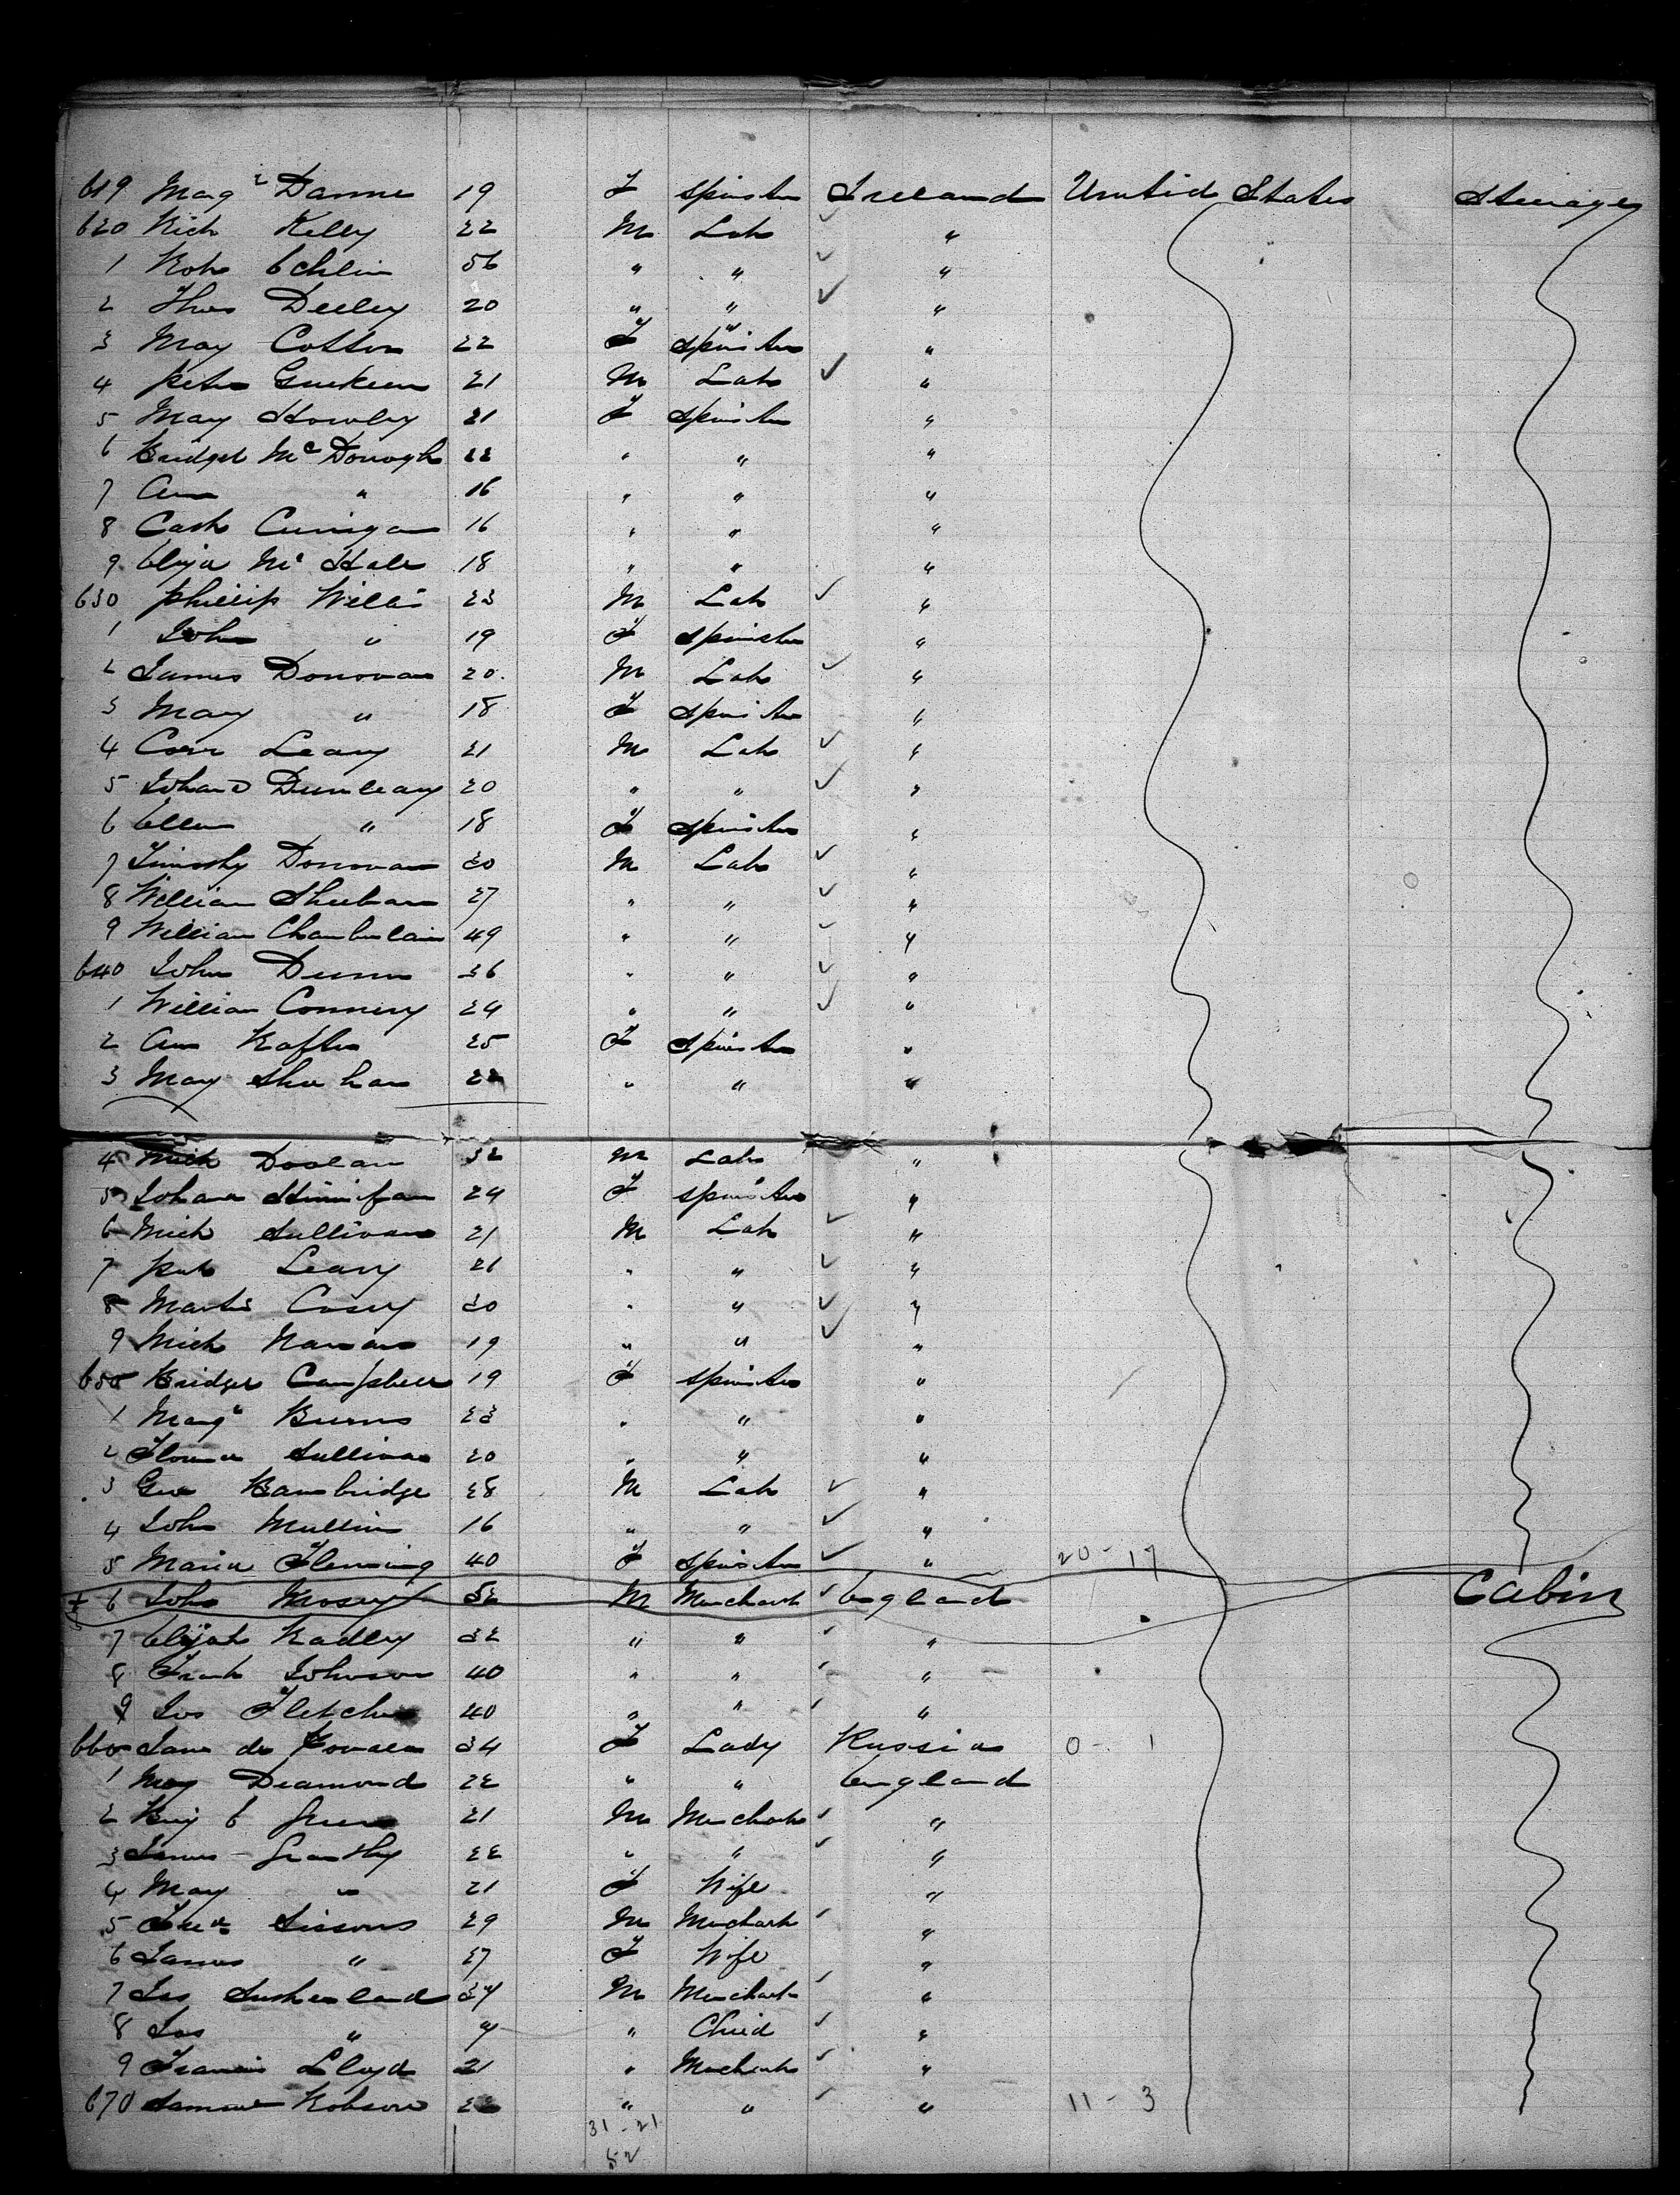 619 Mag Danne 19 F Spinster Ireland United States Steerage
620 Mich Kelly 22 M Lab "
1 Rob 56 " " "
2 Thos Deeley 20 " " "
3 May Cotton 22 F Spinster "
4 Peter 21 M Lab "
5 May Howley 21 F Spinster "
6 Bridget Mc Donogh 22 " " "
7 Ann " 16 " " "
8 Cath 16 " " "
9 Eliza Mc Hale 18 " " "
630 Phillip Willis 23 M Lab "
1 John " 19 F Spinster "
2 James Donovan 20 M Lab "
3 Mary " 18 F Spinster "
4 Corn Leary 21 M Lab "
5 Dunleavy 20 " " "
6 Ellen " 18 F Spinster "
7 Timothy Donovan 30 M Lab "
8 William Sheehan 27 " " "
9 William Chamberlain 49 " " "
640 John Dunn 36 " " "
1 William Connery 24 " " "
2 Ann 25 F Spinster "
3 May Sheehan 22 " " "
4 Mich Doolan 32 M Lab "
5 Johana 24 F Spinster "
6 Mich Sullivan 21 M Lab "
7 Pat Leary 21 " " "
8 Martin Casey 30 " " "
9 Mich 19 " " "
650 Bridget Campbell 19 F Spinster "
1 Marg Burns 23 " " "
2 Sullivan 20 " " "
3 Geo Bambridge 28 M Lab "
4 John Mullin 16 " " "
5 Maria Fleming 40 F Spinster " 20 - 17
6 John Mosey 52 M Merchant England Cabin
7 Elijah Radley 32 " " "
8 Frank Johnson 40 " " "
9 Jos Fletcher 40 " " "
660 Jane de 34 F Lady Russia 0 - 1
1 May Diamond 22 " " England
2 Benj E Green 21 M Merchant "
3 James 22 " " "
4 May " 21 F Wife "
5 Fred Sissons 29 M Merchant "
6 " 27 F Wife "
7 Jas Sutherland M Merchant "
8 Jas " " Child "
9 Francis Lloyd 21 " Merchant "
670 Samuel Robson " " " 11 - 3
31 - 21
52